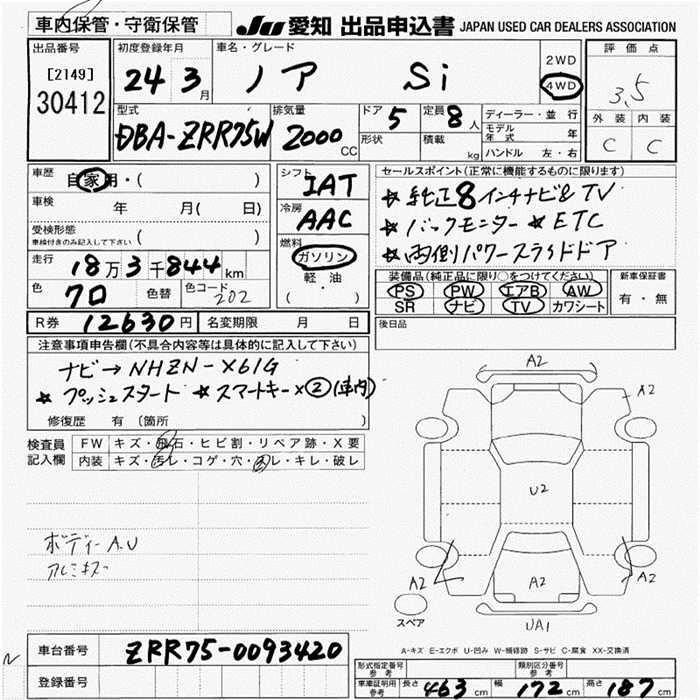 車内保管・守衛保管 JU 愛知 出品申込書 JAPAN USED CAR DEALERS ASSOCIATION
出品番号 [2149] 30412
初度登録年月 24 3月
車名・グレード ノア Si
2WD 4WD
評価点 3.5
外装 内装
C C
型式 DBA-ZRR75W
排気量 2000 CC
ドア 5 定員 8人
形状 積載 kg
ディーラー・並行
モデル年式 年
ハンドル 左・右
車歴 自家用・( )
車検 年 月( 日)
受検形態 ( )
車検付きのみ記入して下さい
走行 18万3千844km
色 クロ 色替 色コード 202
シフト IAT
冷房 AAC
燃料 ガソリン
軽油
( ・ )
セールスポイント(正常に機能するものに限ります)
★純正8インチナビ& TV
★バックモニター ★ETC
★両側パワースライドドア
装備品(純正品に限り○をつけてください)
PS PW エアB AW
SR ナビ TV カワシート
新車保証書
有・無
R券 12630円 名変期限 月 日
後日品
注意事項申告欄(不具合内容等は具体的に記入して下さい)
ナビ→NHZN-X61G
★プッシュスタート ★スマートキー×②(車内)
修復歴 有 〔箇所 〕
検査員記入欄
FW キズ・飛石・ヒビ割・リペア跡・X要
内装 キズ・汚レ・コゲ・穴・スレ・キレ・破レ
ボディーA.U
アルミキズ
A2
A2
U2
A2
A2
A2
UA1
スペア
A-キズ E-エクボ U-凹み W-補修跡 S-サビ C-腐食 XX-交換済
車台番号 ZRR75-0093420
登録番号
型式指定番号 参考
類別区分番号 参考
車庫証明用 参考 長さ 463cm 幅 172cm 高さ 187cm